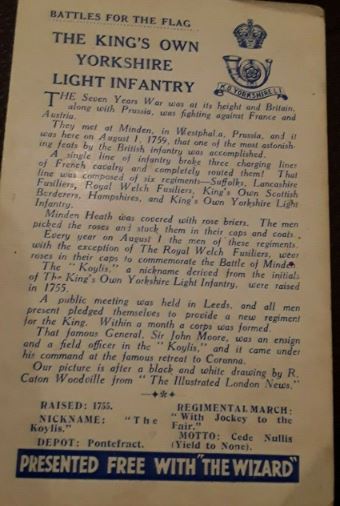 BATTLES FOR THE FLAG
THE KING'S OWN
YORKSHIRE
LIGHT INFANTRY
K.O. YORKSHIRE L.I.
THE Seven Years War was at its height and Britain,
along with Prussia, was fighting against France and
Austria.
They met at Minden, in Westphalia, Prussia, and it
was here on August 1, 1759, that one of the most astonish-
ing feats by the British infantry was accomplished.
A single line of infantry broke three charging lines
of French cavalry and completely routed them! That
line was composed of six regiments—Suffolks, Lancashire
Fusiliers, Royal Welch Fusiliers, King's Own Scottish
Borderers, Hampshires, and King's Own Yorkshire Light
Infantry.
Minden Heath was covered with rose briers. The men
picked the roses and stuck them in their caps and coats.
Every year on August 1 the men of these regiments,
with the exception of The Royal Welch Fusiliers, wear
roses in their caps to commemorate the Battle of Minden.
The "Koylis," a nickname derived from the initials
of The King's Own Yorkshire Light Infantry, were raised
in 1755.
A public meeting was held in Leeds, and all men
present pledged themselves to provide a new regiment
for the King. Within a month a corps was formed.
That famous General, Sir John Moore, was an ensign
and a field officer in the "Koylis," and it came under
his command at the famous retreat to Corunna.
Our picture is after a black and white drawing by R.
Caton Woodville from "The Illustrated London News."
RAISED: 1755.
NICKNAME: "The
Koylis."
DEPOT: Pontefract.
REGIMENTAL MARCH:
"With Jockey to the
Fair."
MOTTO: Cede Nullis
(Yield to None).
PRESENTED FREE WITH "THE WIZARD"